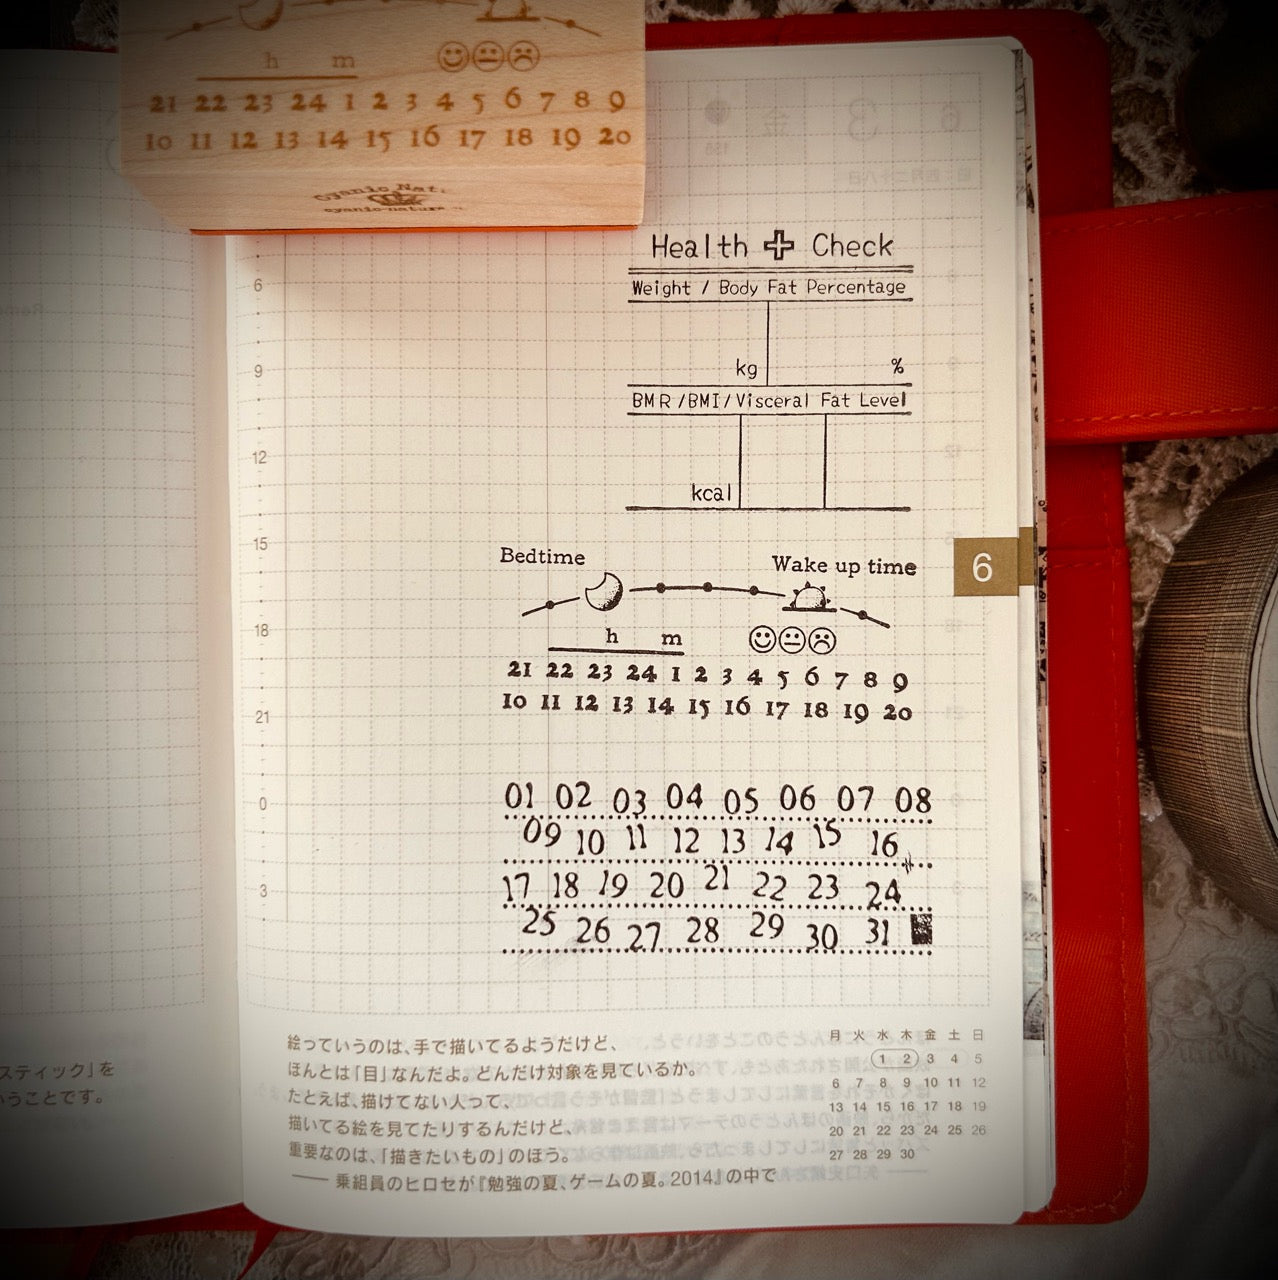 h m
21 22 23 24 1 2 3 4 5 6 7 8 9
10 11 12 13 14 15 16 17 18 19 20
Health Check
Weight / Body Fat Percentage
kg %
BMR/BMI/Visceral Fat Level
kcal
Bedtime Wake up time
h m
21 22 23 24 1 2 3 4 5 6 7 8 9
10 11 12 13 14 15 16 17 18 19 20
01 02 03 04 05 06 07 08
09 10 11 12 13 14 15 16
17 18 19 20 21 22 23 24
25 26 27 28 29 30 31
6
9
12
15
18
21
0
3
6
スティック」を
うことです。
絵っていうのは、手で描いてるようだけど、
ほんとは「目」なんだよ。どんだけ対象を見ているか。
たとえば、描けてない人って、
描いてる絵を見てたりするんだけど、
重要なのは、「描きたいもの」のほう。
—— 乗組員のヒロセが『勉強の夏、ゲームの夏。2014』の中で
月 火 水 木 金 土 日
1 2 3 4 5
6 7 8 9 10 11 12
13 14 15 16 17 18 19
20 21 22 23 24 25 26
27 28 29 30